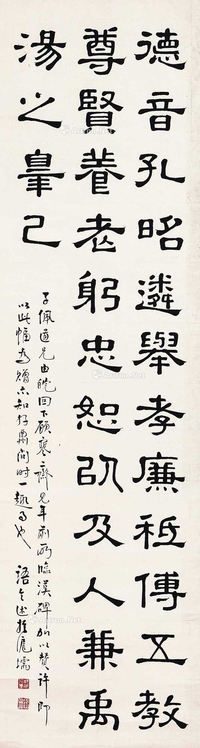 德音孔昭遂舉孝廉祗傅五教
尊賢養老躬忠恕㠯及人兼禹
湯之辠己
子佩道兄由皖回下顧齋見年前所臨漢碑加以贊許即
以此幅為贈亦知好閒時一趣事也
於滬壖